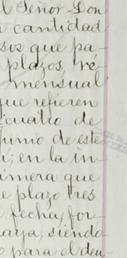 l Señor Don
a cantidad
sos que pa-
plazos, tre-
mensual
que refieren
cuatro de
unio de este
i; en la in-
imera que
e plazo tres
fecha, for-
aya, siendo
o para el deu-